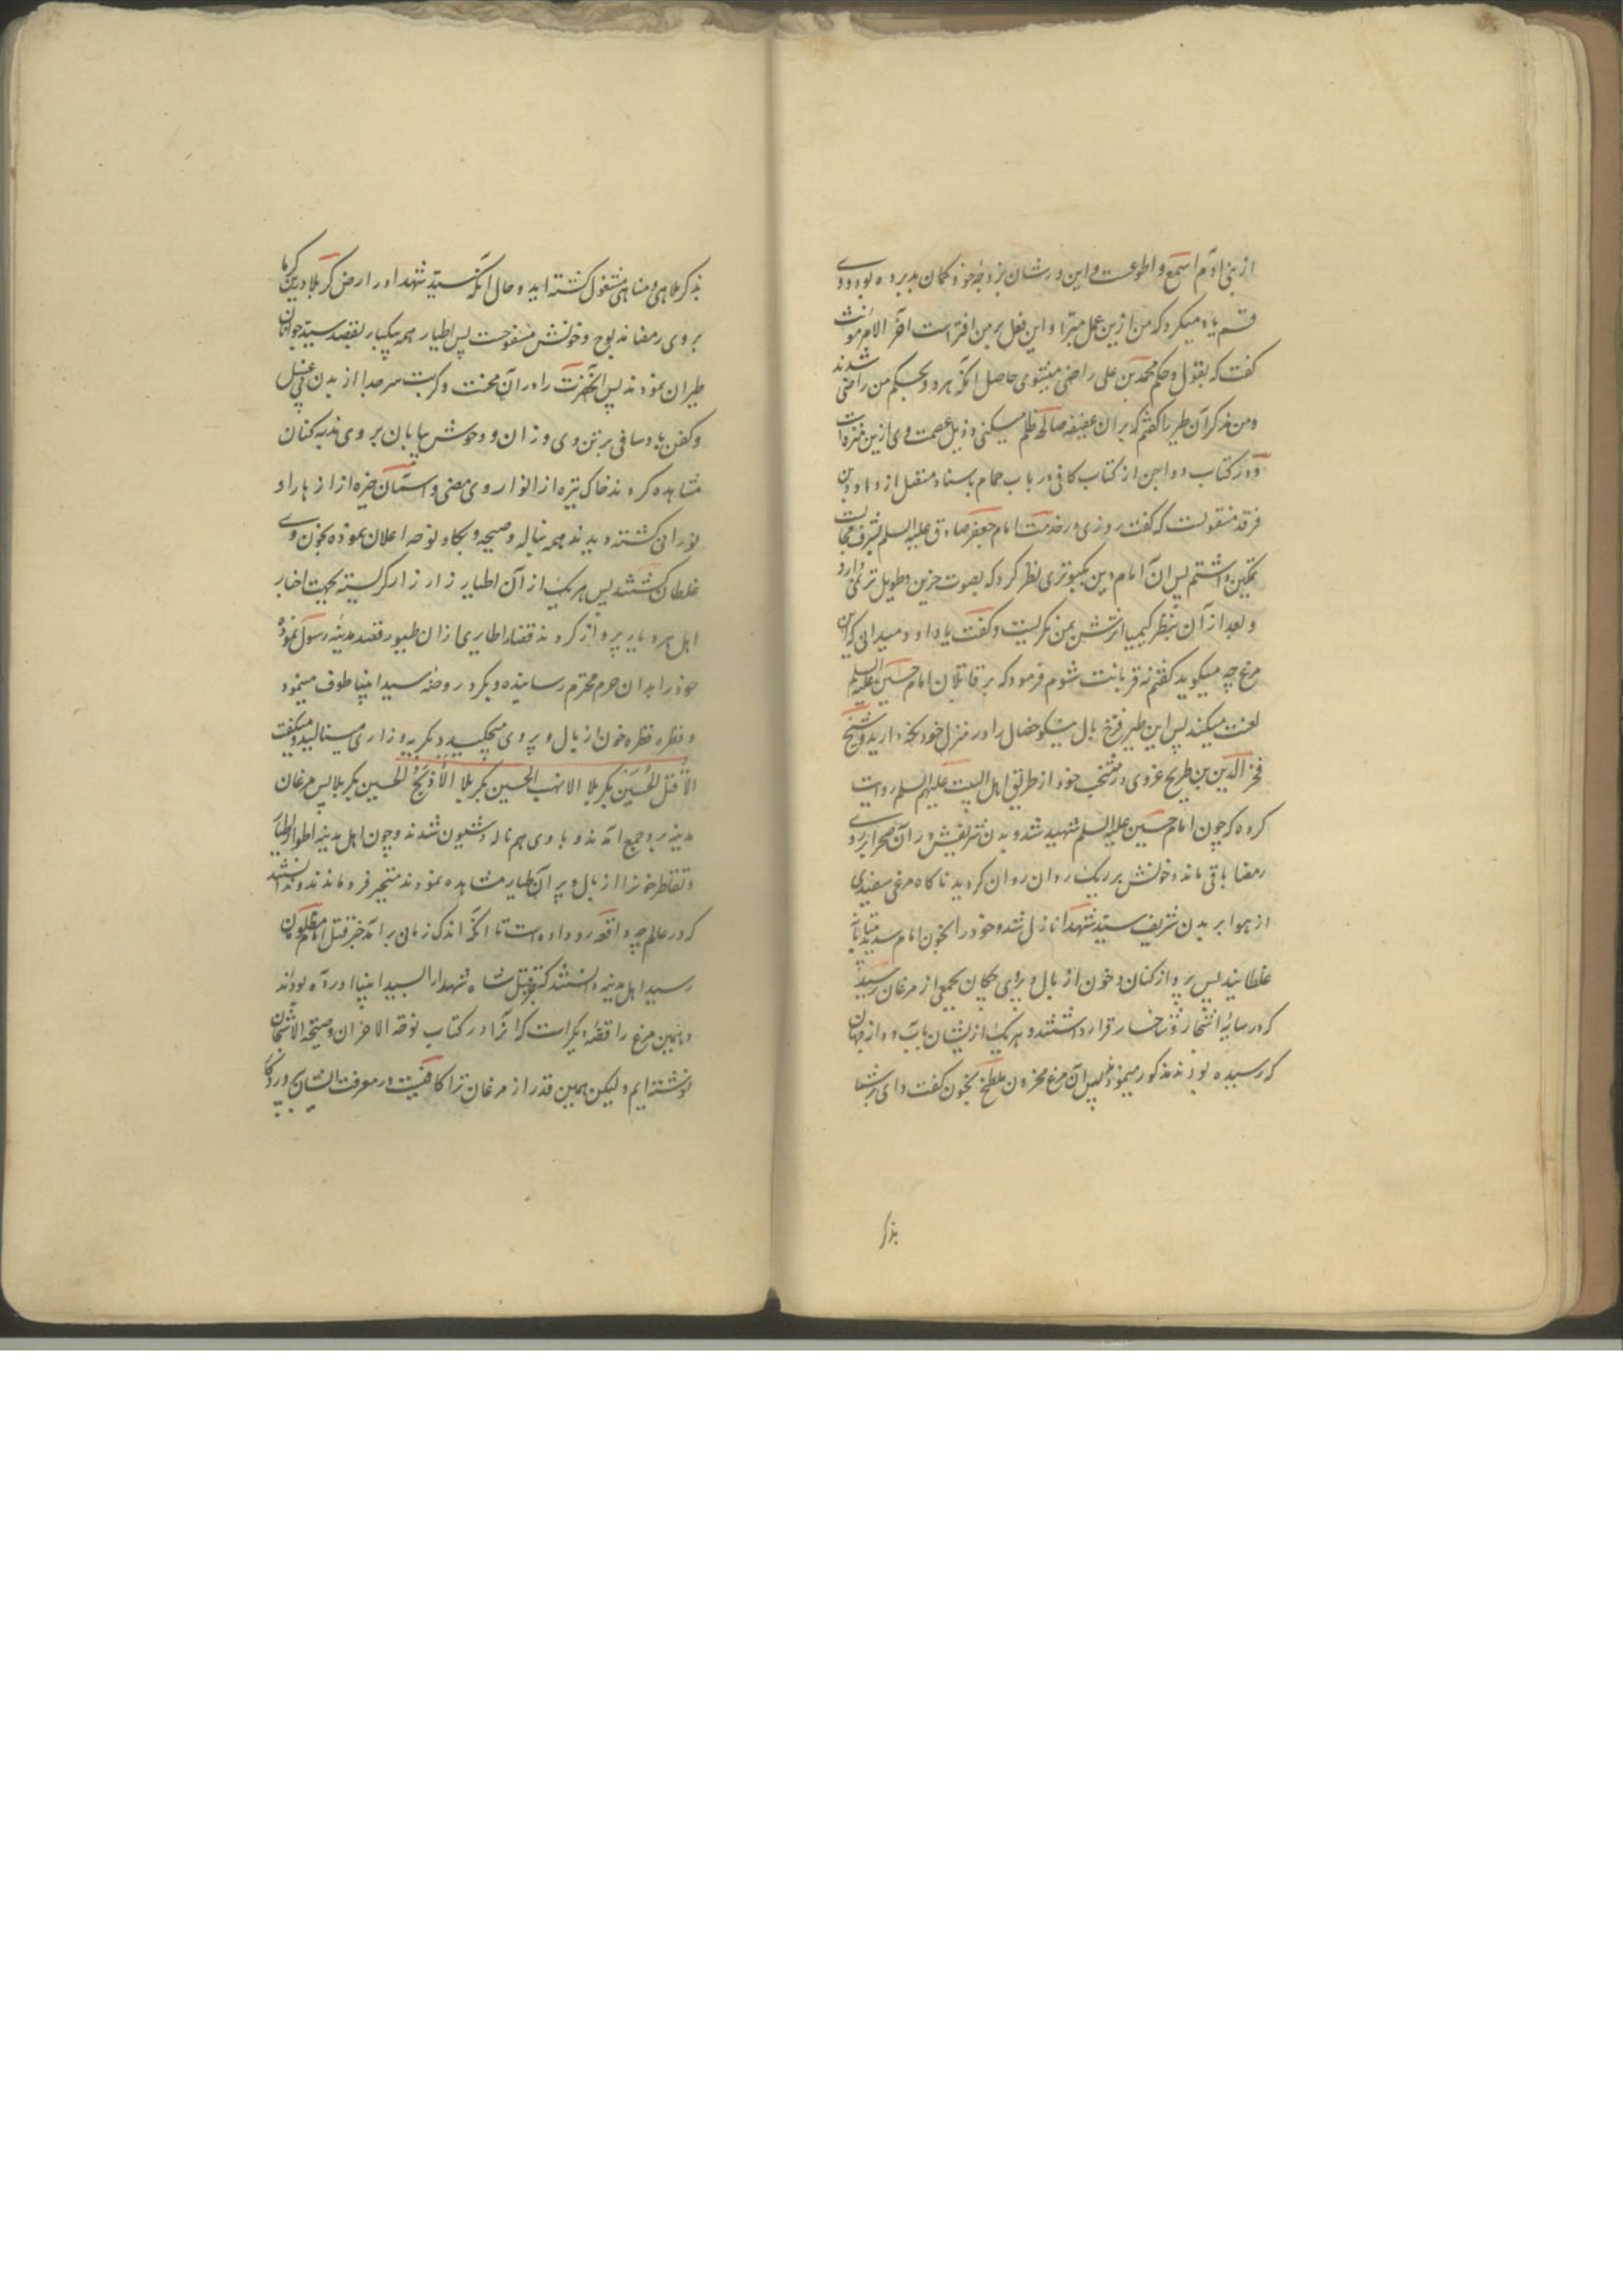 از بنی آدم اسمع و اطوعست و این ورشان بزوجهٔ خود کمان بد برده بود و وی
قسم یاد میکرد که من ازین عمل مبرّا و این فعل بر من افتراست آخر الامر مؤنث
کفت که بقول و حکم محمد بن علی راضی میشوی حاصل آنکه هر دو بحکم من راضی شدند
و من مذکر آن طیر را کفتم که بر آن عفیفه صالحه ظلم میکنی و ذیل عصمت وی ازین منزه است
و در کتاب دواجن از کتاب کافی در باب حمام باسناد متصل از داود بن
فرقد منقولست که کفت روزی در خدمت امام جعفر صادق علیه السلم شرف مجالست
تمکین داشتم پس آن امام دین بکبوتری نظر کرد که بصوت حزین و طویل ترنمی دارد
و بعد از آن بنظر کیمیا اثرش بمن نکریست و کفت یا داود میدانی که این
مرغ چه میکوید کفتم نه قربانت شوم فرمود که بر قاتلان امام حسین علیه السلم
لعنت میکند پس این طیر فرخ بال نیکو خصال را در منزل خود نکه دارید و شیخ
فخر الدین بن طریح غروی در منتخب خود از طریق اهل البیت علیهم السلم روایت
کرده که چون امام حسین علیه السلم شهید شد و بدن شریفش در آن صحرا بر روی
رمضا باقی ماند و خونش بر ریک روان روان کردید ناکاه مرغی سفیدی
از هوا بر بدن شریف سید شهدا نازل شد و خود را بخون امام
غلطانید پس پرواز کنان و خون از بال و پر وی چکان بجمعی از مرغان رسید
که در سایهٔ اشجار و شاخسار قرار داشتند و هر یک ازیشان بآب و دانه
که رسیده بودند مذکور مینمود پس آن مرغ محزون ملطخ بخون کفت وای بر شما
بذکر
بذکر ملاهی و مناهی مشغول کشته اید و حال آنکه سید شهدا در ارض کربلا درین کرما
بر روی رمضا مذبوح و خونش مسفوحست پس اطیار همه بیکبار بقصد سید جوانان
طیران نمودند پس آنحضرت را در آن محنت و کربت سر جدا از بدن بی غسل
و کفن باد سافی بر تن وی وزان و وحوش بیابان بر وی ندبه کنان
مشاهده کردند خاک تیره از انوار روی مضی و
نورانی کشته دیدند همه بناله و صیحه و بکا و نوحه اعلان نموده بخون وی
غلطان کشتند پس هر یک از آن اطیار زار زار کریسته بجهت اخبار
اهل هر دیار پرواز کردند قضا را طایری از آن طیور قصد مدینهٔ رسول نموده
خود را بدان حرم محترم رسانیده و بکرد روضه سید انبیا طوف مینمود
و قطره قطره خون از بال و پر وی میچکید و بکریه و زاری مینالید و میکفت
الا قتل الحسین بکربلا الا نهب الحسین بکربلا الا ذبح الحسین بکربلا پس مرغان
مدینه بر وی جمع آمدند و با وی هم ناله و شیون شدند و چون اهل مدینه اطوار اطیار
و تقاطر خون را از بال و پر آن طیار مشاهده نمودند متحیر فرو ماندند و ندانستند
که در عالم چه واقعه رو داده است تا آنکه اندک زمان بر آمد خبر قتل امام مظلومان
رسید اهل مدینه دانستند که خبر قتل شاه شهدا را بسید انبیا آورده بودند
و همین مرغ را قصهٔ دیکر است که آنرا در کتاب نوحة الاحزان و صیحة الاشجان
نوشته ایم و لیکن همین قدر از مرغان ترا کافیست در معرفت